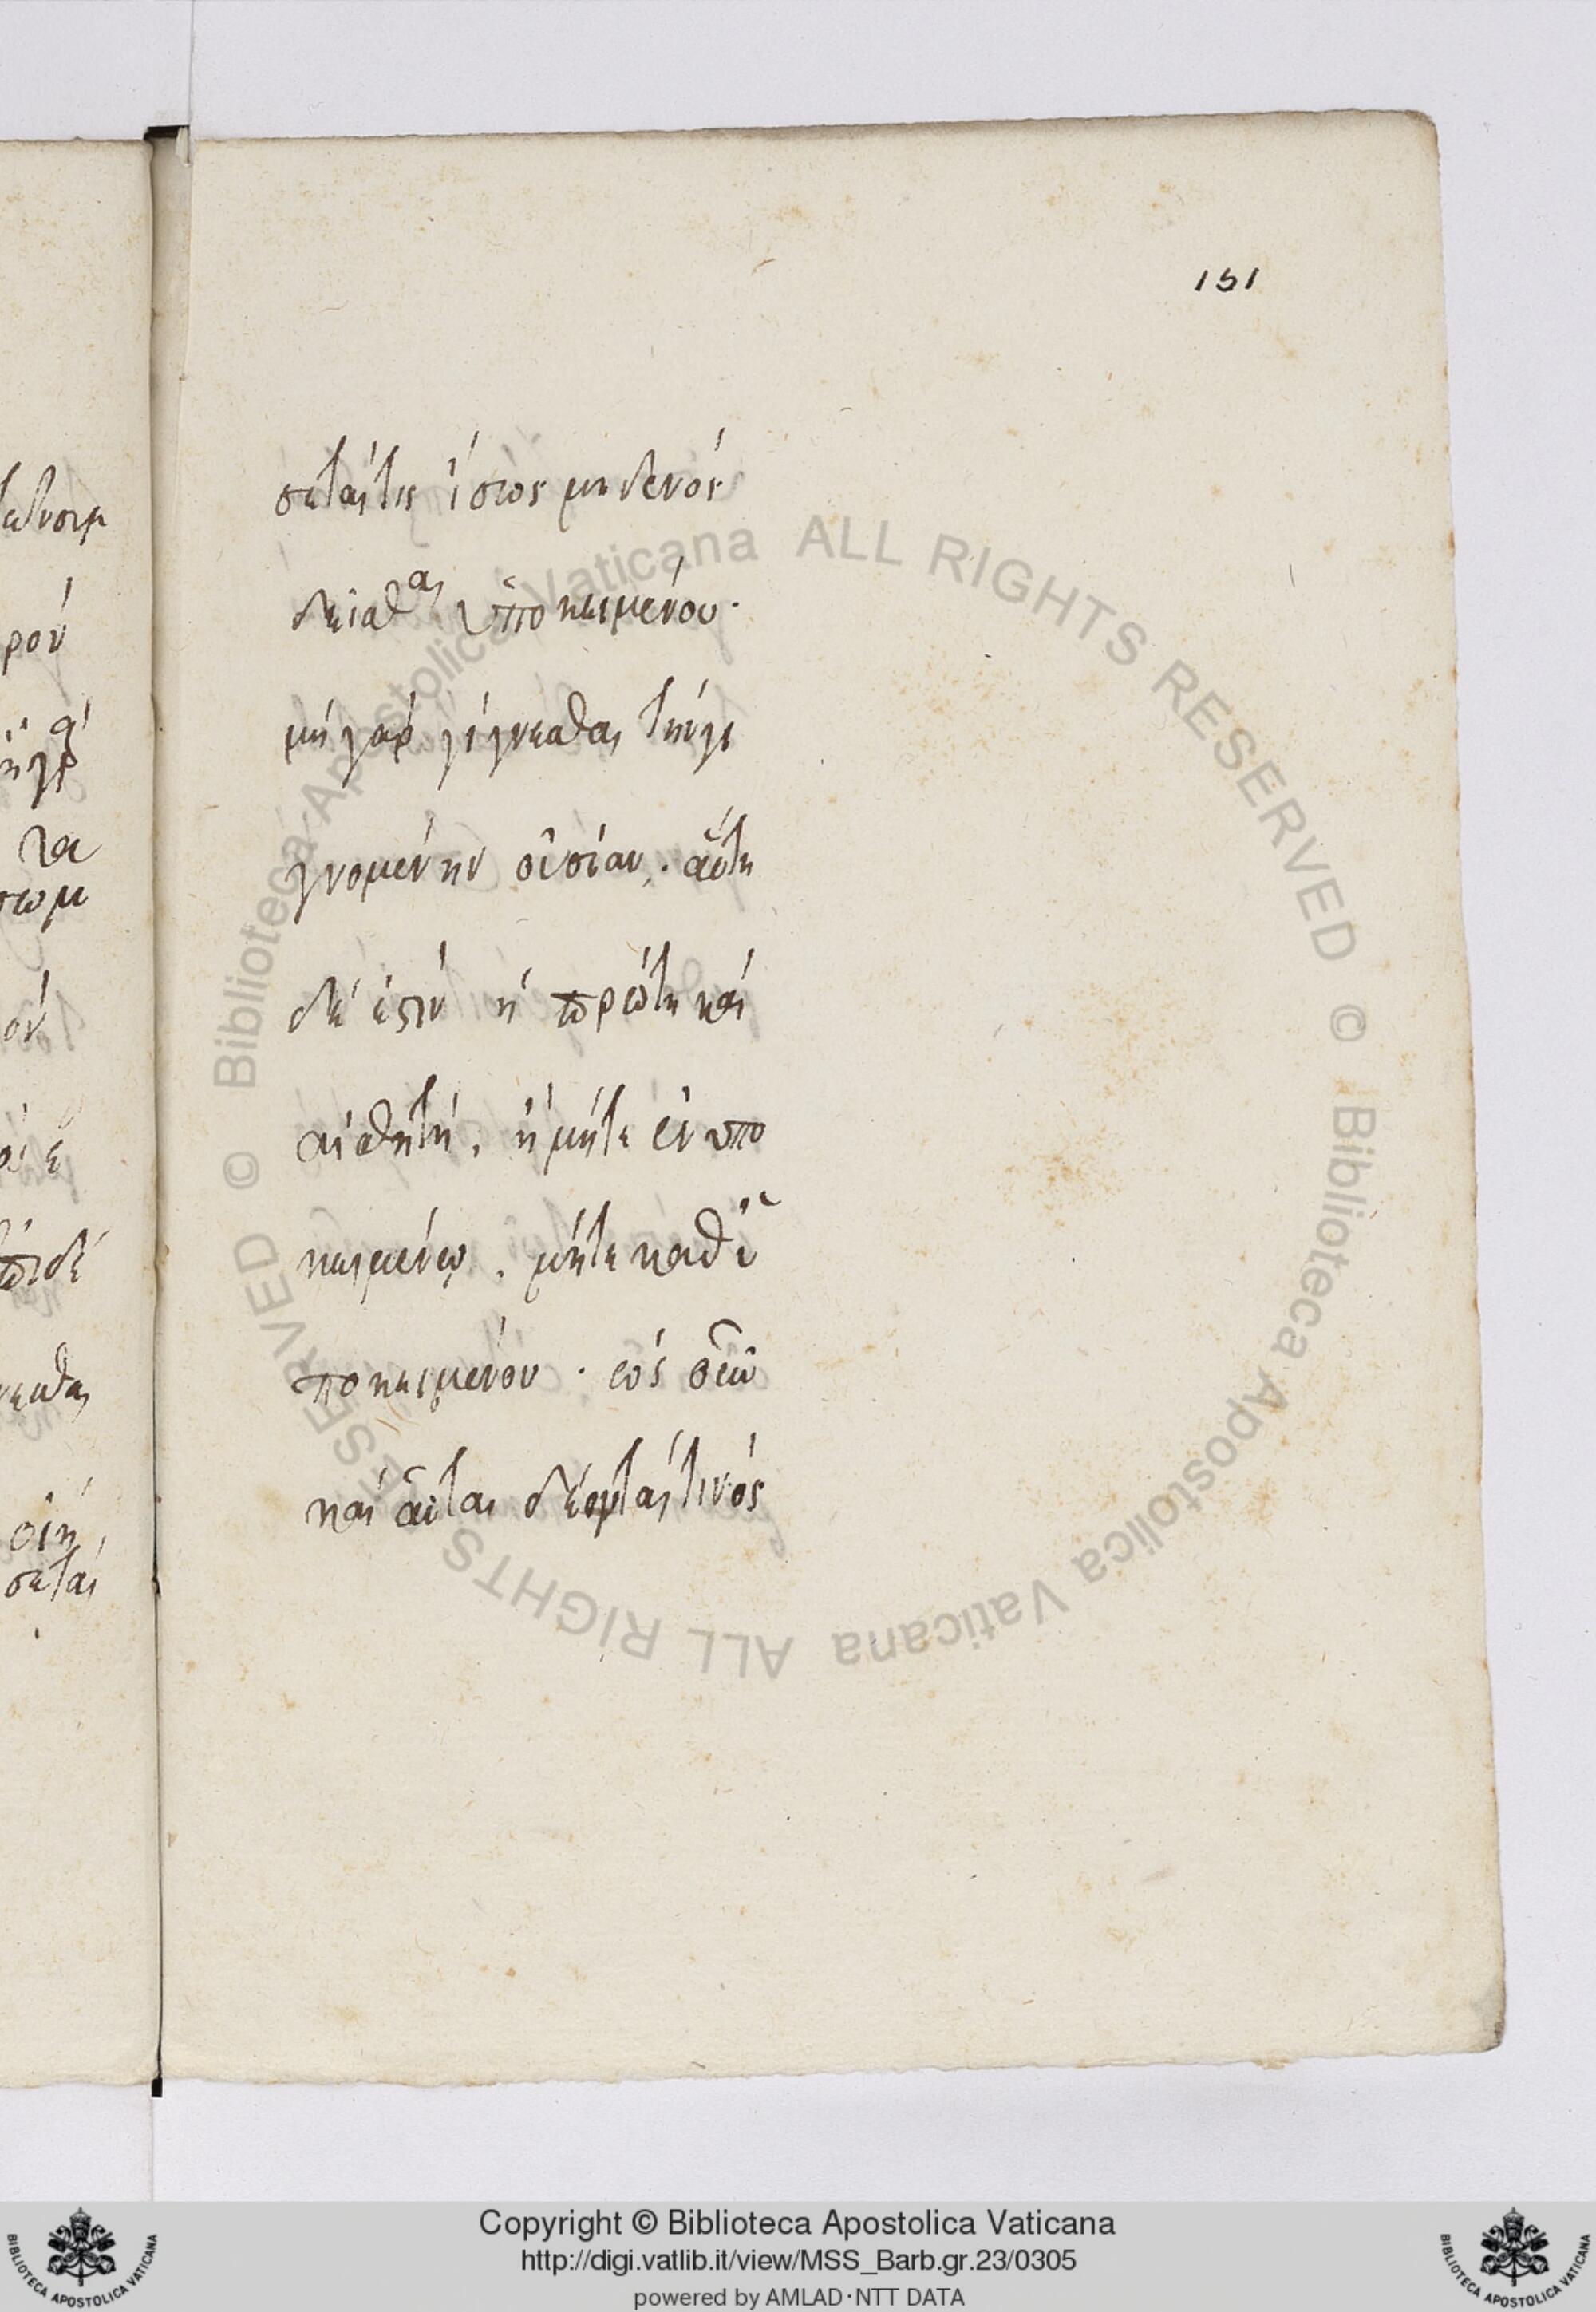 151
σεταί τις ἴσως μηδενός
δεῖσθαι ὑποκειμένου·
μὴ γὰρ γίγνεσθαι τήν γι
γνομένην οὐσίαν. αὕτη
δέ ἐστιν ἡ πρώτη καὶ
αἰσθητή. ἡ μήτε ἐν ὑπο
κειμένῳ. μήτε καθ' ὑ
ποκειμένου· ὡς οὖν
καὶ αὗται δέονταί τινός
ρόν
δέ
© Biblioteca Apostolica Vaticana ALL RIGHTS RESERVED © Biblioteca Apostolica Vaticana ALL RIGHTS RESERVED
Copyright © Biblioteca Apostolica Vaticana
http://digi.vatlib.it/view/MSS_Barb.gr.23/0305
powered by AMLAD·NTT DATA
BIBLIOTECA APOSTOLICA VATICANA
BIBLIOTECA APOSTOLICA VATICANA